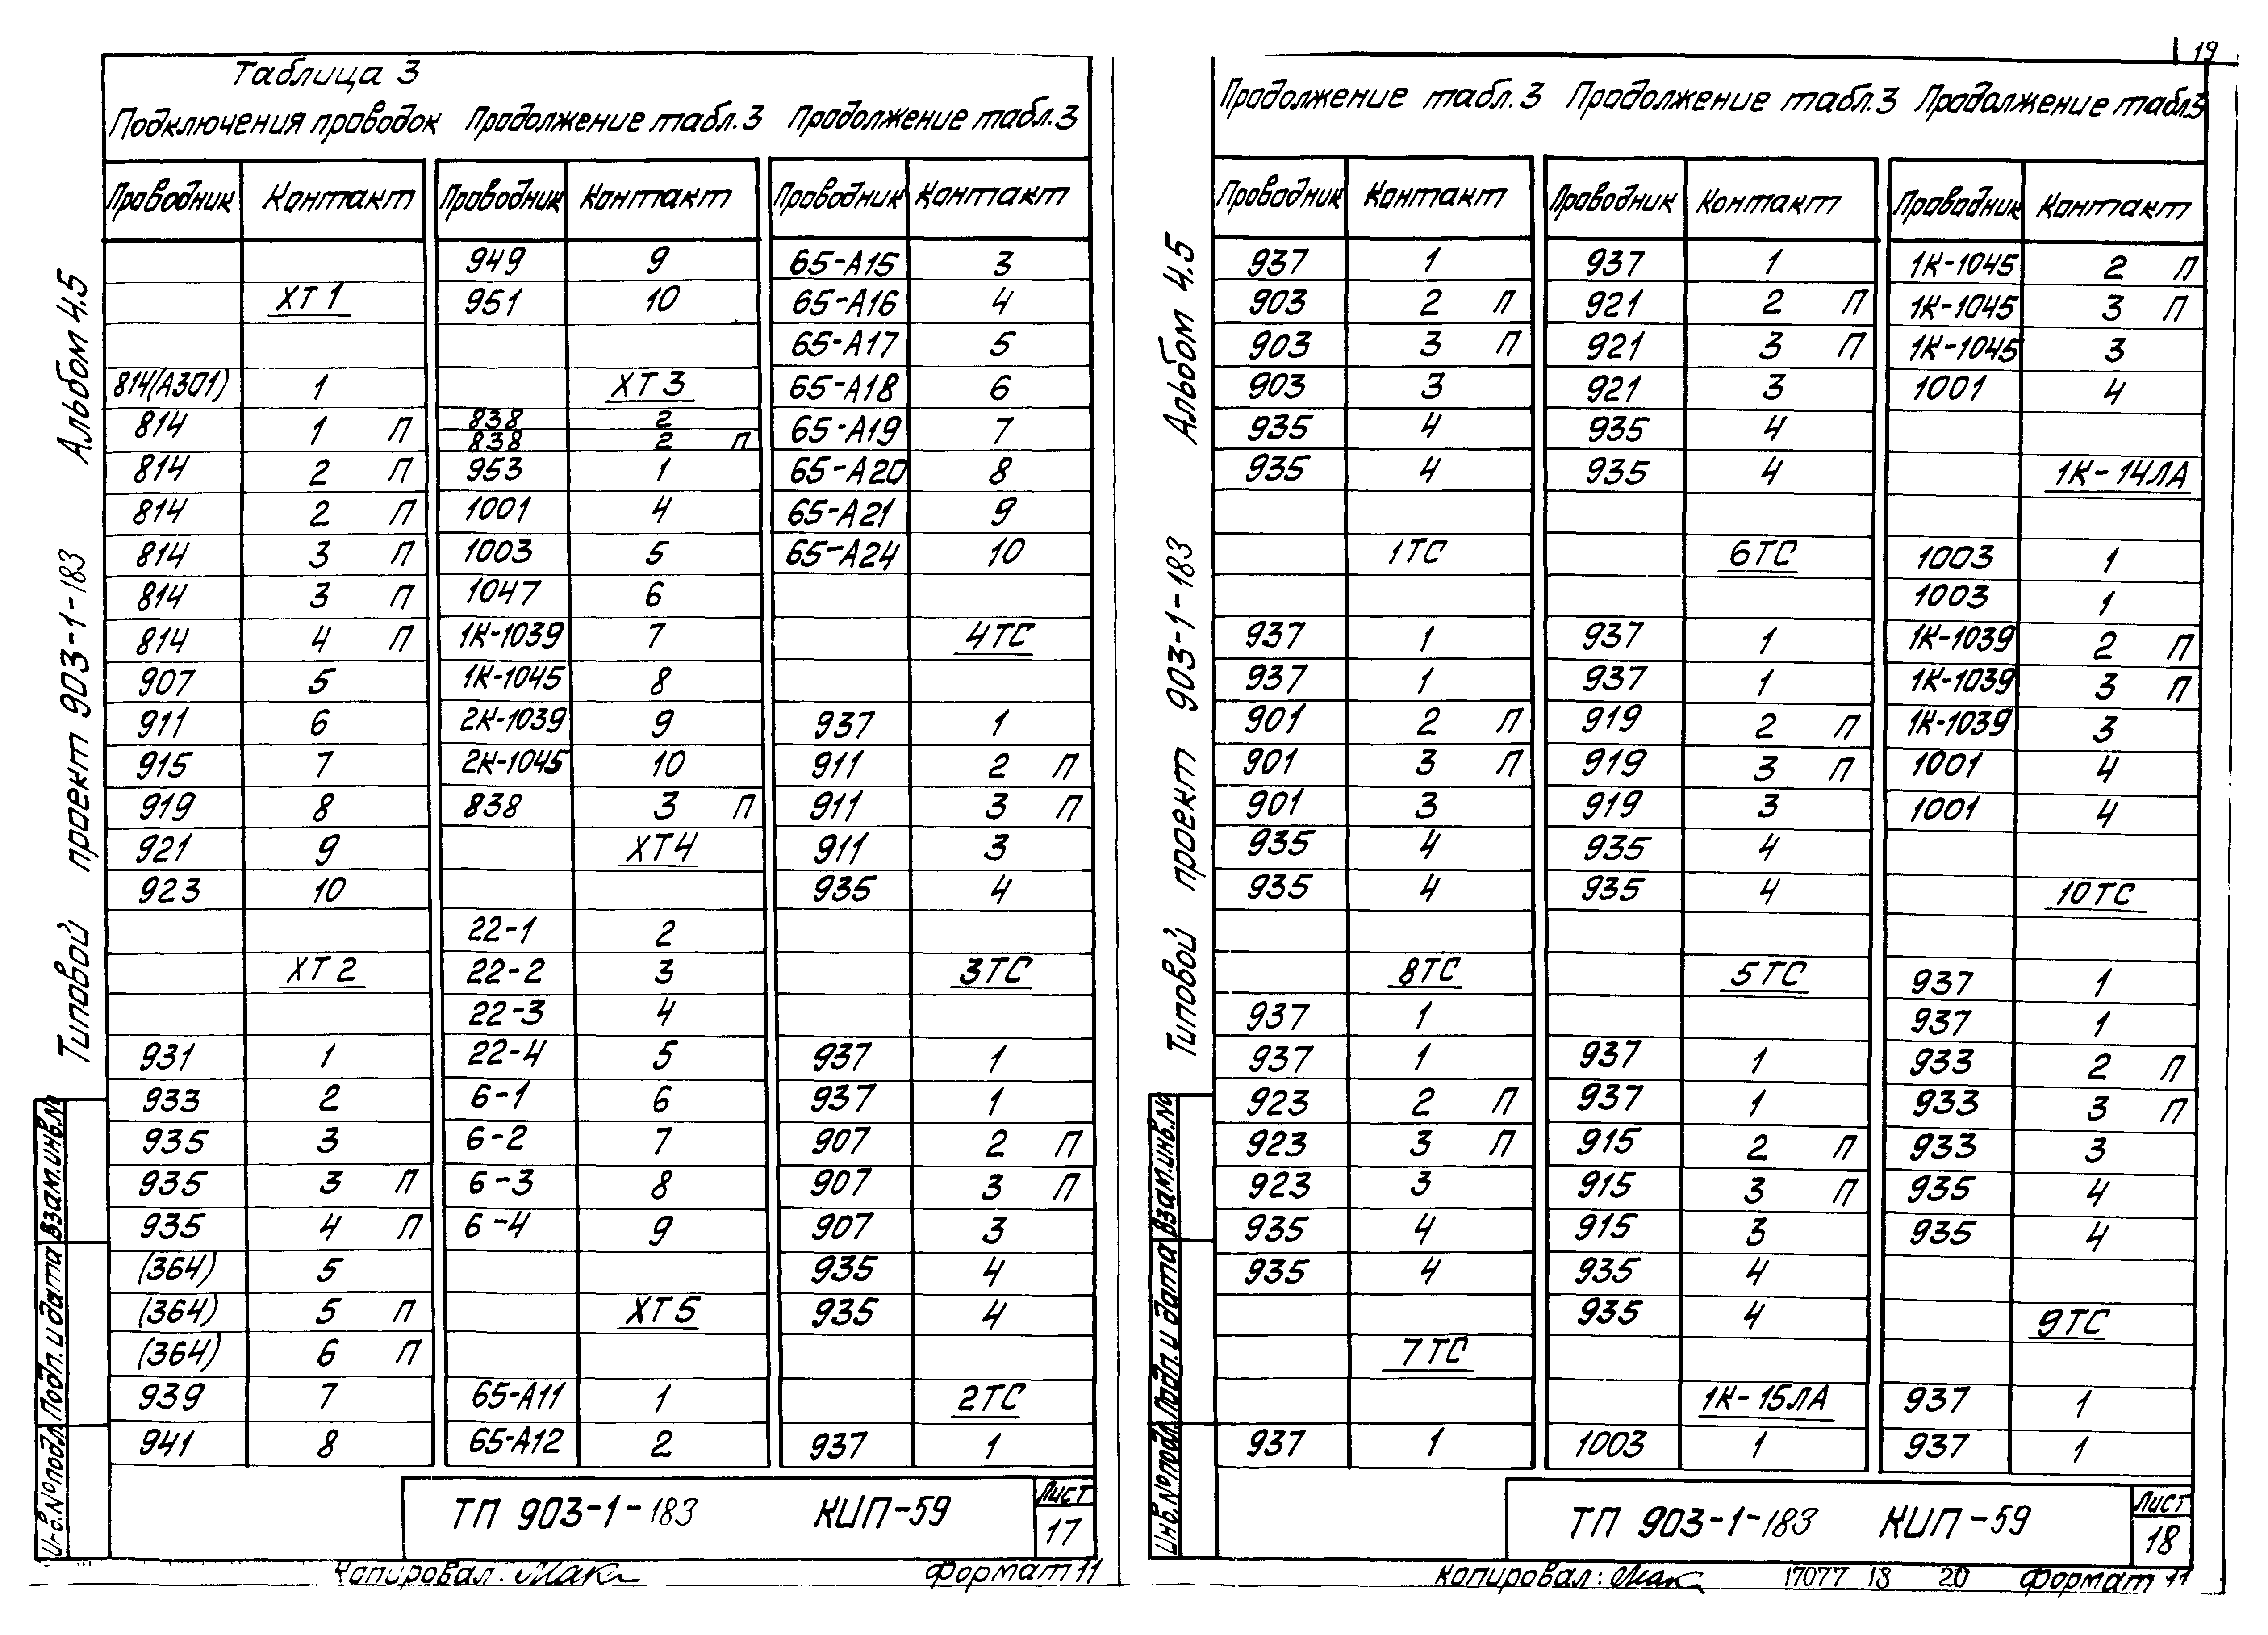 19
Таблица 3
Подключения проводок
Проводник Контакт
ХТ1
814(А301) 1
814 1 П
814 2 П
814 2 П
814 3 П
814 3 П
814 4 П
907 5
911 6
915 7
919 8
921 9
923 10
ХТ2
931 1
933 2
935 3
935 3 П
935 4 П
(364) 5
(364) 5 П
(364) 6 П
939 7
941 8
Продолжение табл.3
Проводник Контакт
949 9
951 10
ХТ3
838 2
838 2 П
953 1
1001 4
1003 5
1047 6
1К-1039 7
1К-1045 8
2К-1039 9
2К-1045 10
838 3 П
ХТ4
22-1 2
22-2 3
22-3 4
22-4 5
6-1 6
6-2 7
6-3 8
6-4 9
ХТ5
65-А11 1
65-А12 2
Продолжение табл.3
Проводник Контакт
65-А15 3
65-А16 4
65-А17 5
65-А18 6
65-А19 7
65-А20 8
65-А21 9
65-А24 10
4ТС
937 1
911 2 П
911 3 П
911 3
935 4
3ТС
937 1
937 1
907 2 П
907 3 П
907 3
935 4
935 4
2ТС
937 1
Типовой проект 903-1-183 Альбом 4.5
Инв.№подл. Подп. и дата Взам.инв.№
ТП 903-1-183 КИП-59
Лист
17
Копировал: Мак
Формат 11
Продолжение табл.3
Проводник Контакт
937 1
903 2 П
903 3 П
903 3
935 4
935 4
1ТС
937 1
937 1
901 2 П
901 3 П
901 3
935 4
935 4
8ТС
937 1
937 1
923 2 П
923 3 П
923 3
935 4
935 4
7ТС
937 1
Продолжение табл.3
Проводник Контакт
937 1
921 2 П
921 3 П
921 3
935 4
935 4
6ТС
937 1
937 1
919 2 П
919 3 П
919 3
935 4
935 4
5ТС
937 1
937 1
915 2 П
915 3 П
915 3
935 4
935 4
1К-15ЛА
1003 1
Продолжение табл.3
Проводник Контакт
1К-1045 2 П
1К-1045 3 П
1К-1045 3
1001 4
1К-14ЛА
1003 1
1003 1
1К-1039 2 П
1К-1039 3 П
1К-1039 3
1001 4
1001 4
10ТС
937 1
937 1
933 2 П
933 3 П
933 3
935 4
935 4
9ТС
937 1
937 1
Типовой проект 903-1-183 Альбом 4.5
Инв.№подл. Подп. и дата Взам.инв.№
ТП 903-1-183 КИП-59
Лист
18
Копировал: Мак
17077 18 20
Формат 11